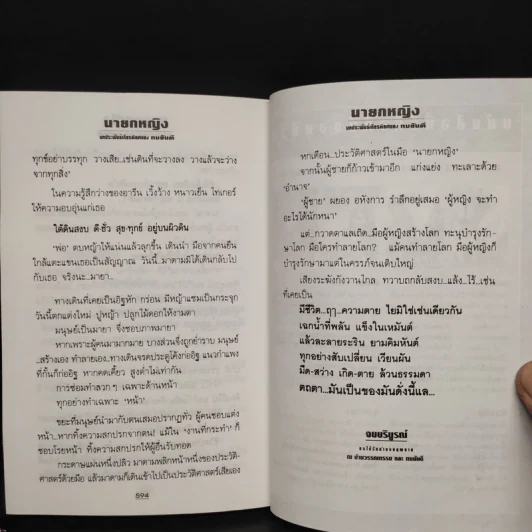 นายกหญิง
บทประพันธ์เกียรติยศของ ทมยันตี
ทุกข์อย่าบรรทุก วางเสีย...เช่นดินที่จะวางลง วางแล้วจะว่าง
จากทุกสิ่ง'
ในความรู้สึกว่างของอาริน เวิ้งว้าง หนาวเย็น ไทเกอร์
ให้ความอบอุ่นแก่เธอ
ใต้ดินสงบ ดี-ชั่ว สุข-ทุกข์ อยู่บนผิวดิน
'พ่อ' ตบหญ้าให้แน่นแล้วลุกขึ้น เดินนำ มือจากคนยืน
ใกล้แตะแขนเธอเป็นสัญญาณ วันนี้...มาตามมิได้เดินกลับไป
กับเธอ จริงนะ...มายา...
ทางเดินที่เคยเป็นอิฐหัก กร่อน มีหญ้าแซมเป็นกระจุก
วันนี้ตกแต่งใหม่ ปูหญ้า ปลูกไม้ดอกให้งามตา
มนุษย์เป็นมายา จึงชอบภาพมายา
หากเพราะผู้คนมามากมาย บางส่วนจึงถูกย่ำราบ มนุษย์
...สร้างเอง ทำลายเอง...ทางเดินจรดประตูโค้งก่ออิฐ แนวกำแพง
ที่กั้นก็ก่ออิฐ หากคดเคี้ยว สูงต่ำไม่เท่ากัน
การซ่อมทำลวก ๆ เฉพาะด้านหน้า
ทุกอย่างทำเฉพาะ 'หน้า'
ขยะที่มนุษย์นำมากับตนเสมอปรากฏทั่ว ผู้คนชอบแต่ง
หน้า...หากทิ้งความสกปรกจากตน! แม้ใน 'งานที่กระทำ' ก็
ชอบโรยหน้า ทิ้งความสกปรกให้ผู้อื่นรับทอด
กระดาษแผ่นหนึ่งปลิว มาตามพลิกหน้าหนึ่งของประวัติ-
ศาสตร์ด้วยมือ แล้วมาตามก็เดินเข้าไปเป็นประวัติศาสตร์เสียเอง
594
นายกหญิง
บทประพันธ์เกียรติยศของ ทมยันตี
หกเดือน...ประวัติศาสตร์ในมือ 'นายกหญิง'
จากนั้นผู้ชายก็ก้าวเข้ามาอีก แก่งแย่ง ทะเลาะด้วย
'อำนาจ'
'ผู้ชาย' ผยอง อหังการ รำลึกอยู่เสมอ 'ผู้หญิง จะทำ
อะไรได้นักหนา'
แต่...กวาดตาแลเถิด...มือผู้หญิงสร้างโลก ทะนุบำรุงรัก-
ษาโลก มือใครทำลายโลก? แม้คนทำลายโลก มือผู้หญิงก็
บำรุงรักษามาแต่ในครรภ์จนเติบใหญ่
เสียงระฆังกังวานไกล ทวาบถกลับสงบ...แล้ง...ไร้...เช่น
ที่เคยเป็น
มีชีวิต...ฤๅ...ความตาย ไยมิใช่เช่นเดียวกัน
เฉกน้ำที่พลัน แข็งในเหมันต์
แล้วละลายระริน ยามคิมหันต์
ทุกอย่างสับเปลี่ยน เวียนผัน
มืด-สว่าง เกิด-ตาย ล้วนธรรมดา
ตถตา...มันเป็นของมันดั่งนี้แล...
จบบริบูรณ์
ณ บ้านวรรณกรรม และ ทมยันตี